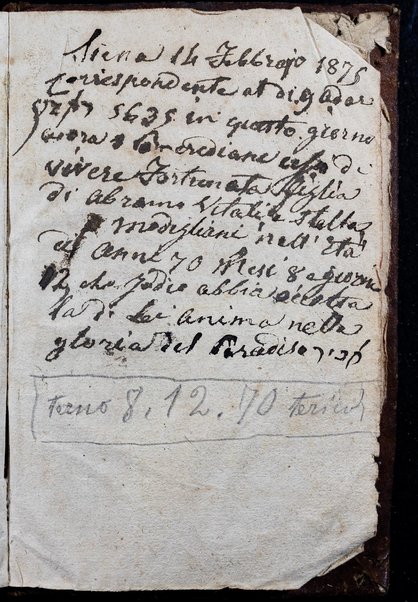 Siena 14 Febbrajo 1875
Corrispondente al di 9 adar
5635 in questo giorno
a ora 1 Pomeridiane cessò di
vivere Fortunata figlia
di Abramo Vitali e Stella
Modigliani nell'età
di anni 70 Mesi 8 e giorni
12 che Iddio abbia accolta
la di Lei anima nella
gloria del Paradiso
terno 8. 12. 70